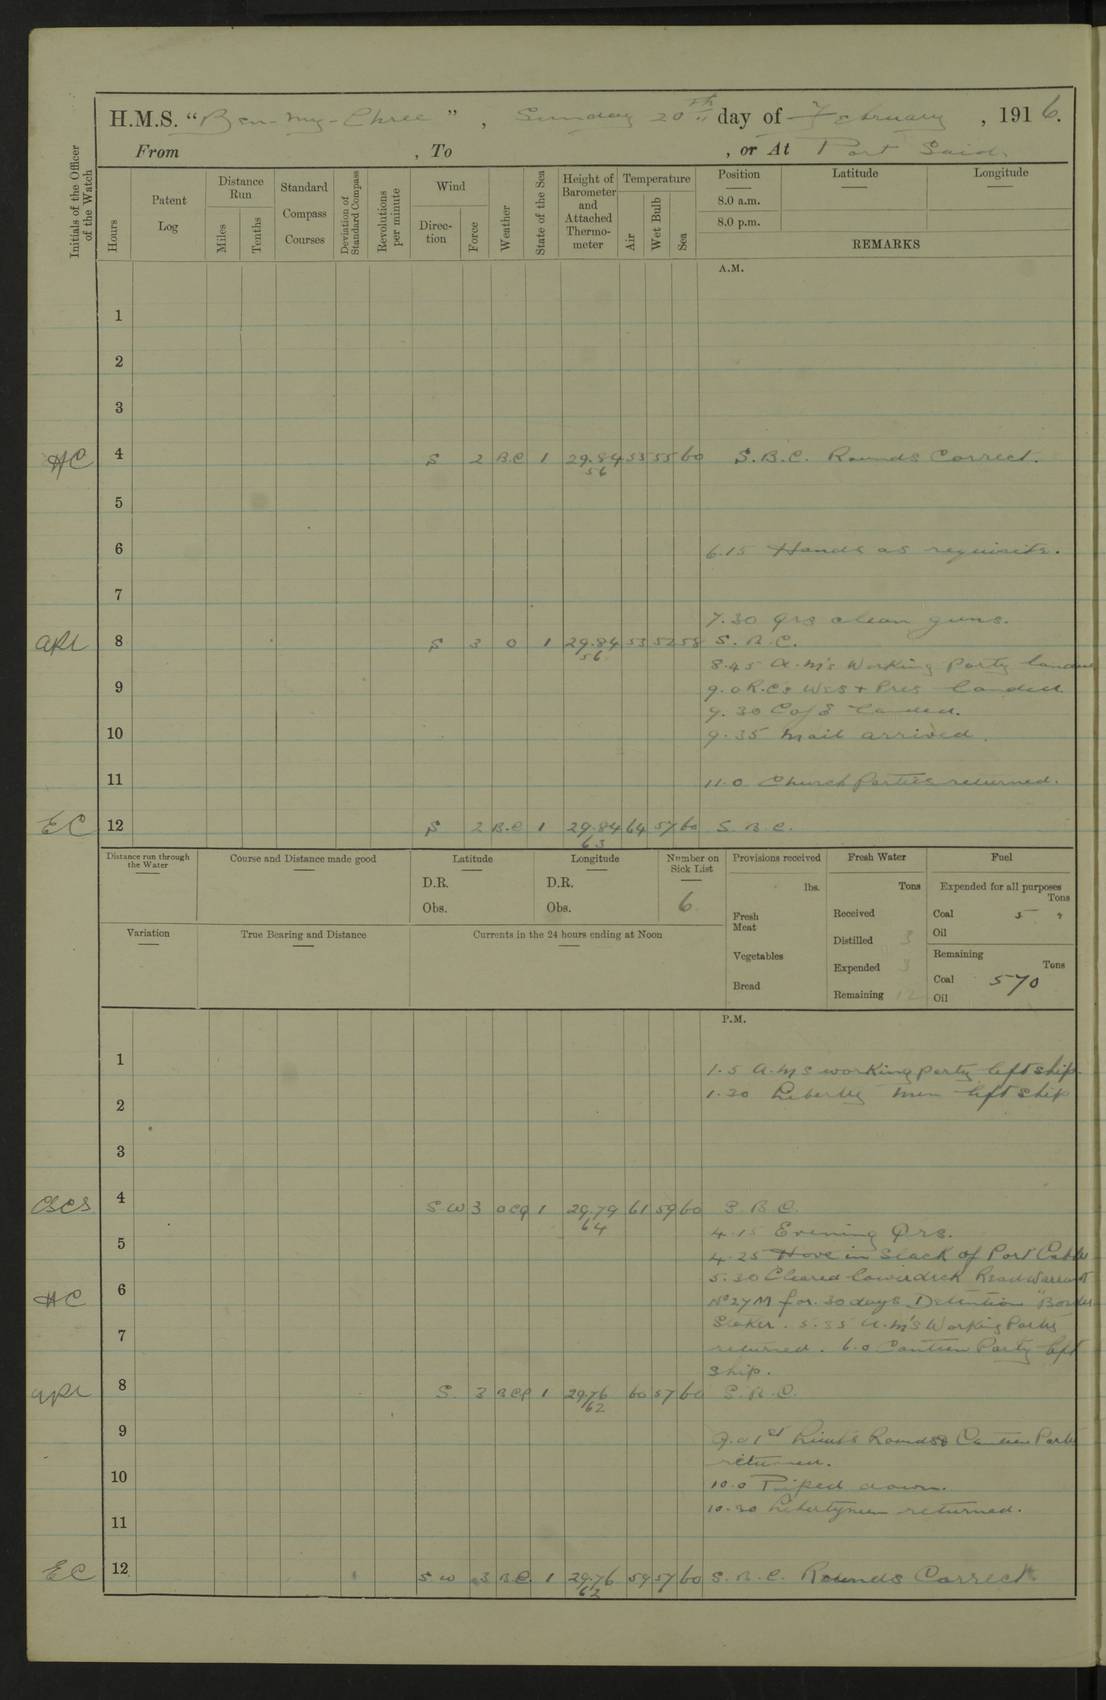 H.M.S. "Ben-my-Chree", Sunday 20th day of February, 1916.
From , To , or At Port Said.
Initials of the Officer of the Watch
Hours
Patent Log
Distance Run
Miles
Tenths
Standard Compass Courses
Deviation of Standard Compass
Revolutions per minute
Wind
Direction
Force
Weather
State of the Sea
Height of Barometer and Attached Thermometer
Temperature
Air
Wet Bulb
Sea
Position
Latitude
Longitude
8.0 a.m.
8.0 p.m.
REMARKS
A.M.
1
2
3
HC 4 S 2 B.C 1 29.84 53 55 60 S.B.C. Rounds Correct.
56
5
6 6.15 Hands as requisite.
7
7.30 Qrs clean guns.
8 S 3 O 1 29.84 53 52 58 S.B.C.
56
8.45 A.M's Working Party landed
9 9.0 R.C's Wes & Pres landed
9.30 C of E landed.
10 9.35 Mail arrived.
11 11.0 Church Parties returned.
EC 12 S 2 B.C 1 29.84 64 57 60 S.B.C.
63
Distance run through the Water
Course and Distance made good
Latitude
D.R.
Obs.
Longitude
D.R.
Obs.
Number on Sick List
6
Provisions received
lbs.
Fresh Meat
Vegetables
Bread
Fresh Water
Tons
Received
Distilled 3
Expended 3
Remaining 12
Fuel
Expended for all purposes
Tons
Coal 5
Oil
Remaining
Tons
Coal 570
Oil
Variation
True Bearing and Distance
Currents in the 24 hours ending at Noon
P.M.
1 1.5 A.M's working party left ship.
2 1.30 Liberty men left ship
3
4 SW 3 OCQ 1 29.79 61 59 60 S.B.C.
64
4.15 Evening Qrs.
5 4.25 Hove in slack of Port Cable
5.30 Cleared lowerdeck Read Warrant
HC 6 No 27M for 30 days Detention
5.35 A.M's Working Party
7 returned. 6.0 Canteen Party left
ship.
8 S. 3 1 29.76 60 57 60 S.B.C.
62
9 9.0 1st Lieut's Rounds Canteen Party
returned.
10 10.0 Piped down.
10.30 Libertymen returned.
11
EC 12 SW 3 B.C. 1 29.76 59 57 60 S.B.C. Rounds Correct.
62